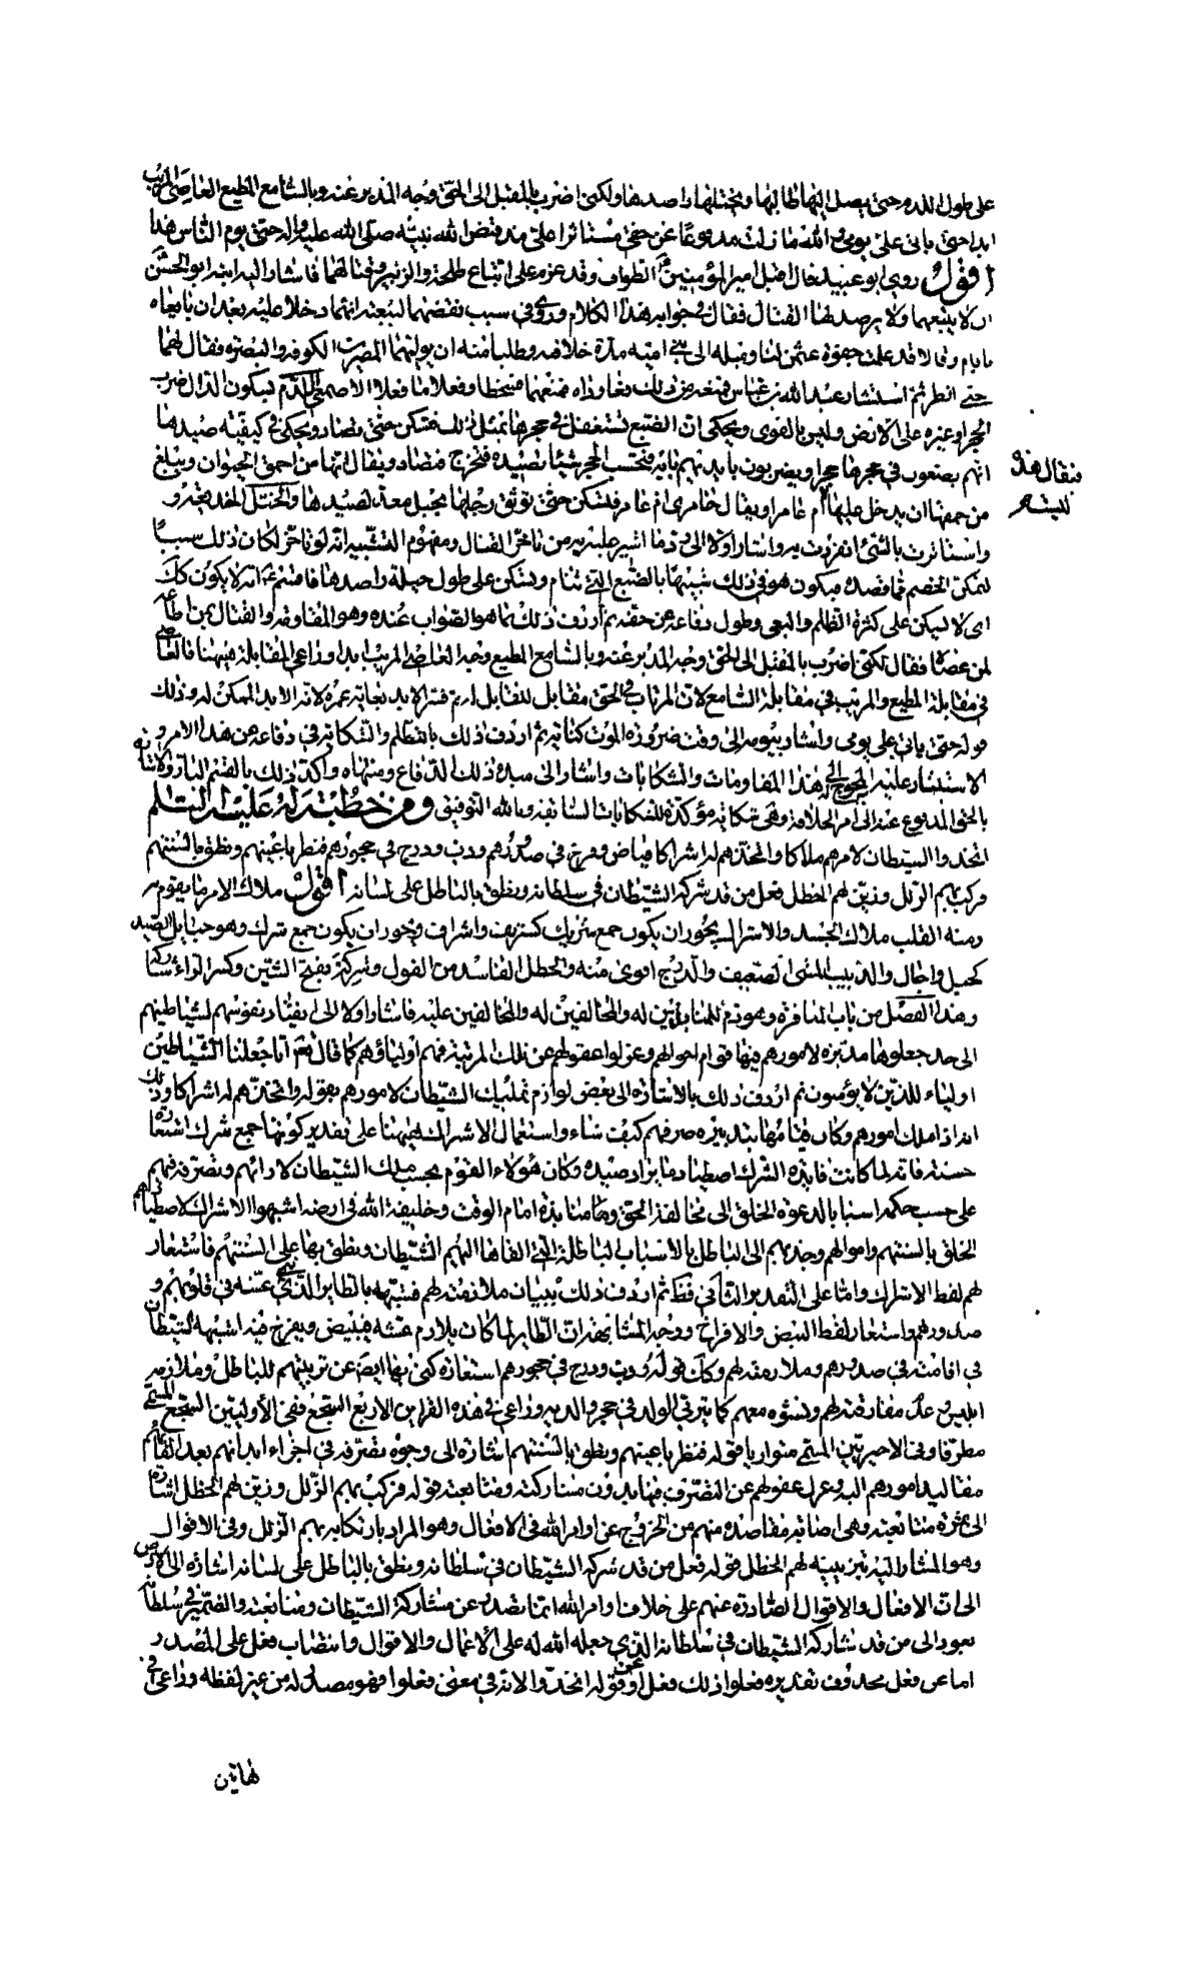 على طول اللدم حتى يصل اليها طالبها ويختلها راصدها ولكني اضرب بالمقبل الى الحق وجه المدبر عنه وبالسامع المطيع العاصي المريب
ابدا حتى ياتى على يومى والله ما زلت مدفوعا عن حقى مستاثرا على منذ قبض الله نبيه صلى الله عليه واله حتى يوم الناس هذا
اقول روى ابو عبيد قال اقبل امير المؤمنين الطواف وقد عزم على اتباع طلحة والزبير وقتالهما فاشار اليه ابنه ابو الحسن
ان لا يتبعهما ولا يرصد لهما القتال فقال في جوابه هذا الكلام وروى في سبب نقضهما لبيعته انهما دخلا عليه بعد ان بايعاه
بايام وقالا قد علمت جفوة عثمن لنا وميله الى بنى امية مدة خلافته وطلبا منه ان يوليهما المصرين الكوفة والبصرة فقال لهما
حتى انظر ثم استشار عبد الله بن عباس فمنعه من ذلك فعاوداه فمنعهما فسخطا وفعلا ما فعلا الاصمعى اللدم بسكون الدال ضرب
الحجر او غيره على الارض وليس بالقوى ويحكى ان الضبع تستغفل في جحرها بمثل ذلك فتسكن حتى تصاد ويحكى في كيفية صيدها
انهم يضعون في جحرها حجرا ويضربون بايديهم بابه فتحسب الحجر شيئا تصيده فتخرج فتصاد ويقال انها من احمق الحيوان ويبلغ
من حمقها ان يدخل عليها ام عامر او يقال خامرى ام عامر فتسكن حتى توثق رجلها بحبل معد لصيدها والختل الخديعة و
واستاثرت بالشئ انفردت به واشار اولا الى رد ما اشير عليه به من تاخر القتال ومفهوم التشبيه انه لو تاخر لكان ذلك سببا
لتمكن الخصم مما قصده فيكون هو في ذلك شبيها بالضبع التى تنام وتسكن على طول حيلة راصدها فاقسم انه لا يكون كك
اى لا يسكن على كثرة الظلم والبغى وطول دفاعه عن حقه ثم اردف ذلك بما هو الصواب عنده وهو المقاومة والقتال بمن اطاعه
لمن عصاه فقال لكنى اضرب بالمقبل الى الحق وجه المدبر عنه وبالسامع المطيع وجه العاصى المريب ابدا وراعى المقابلة فيهما فالعاصى
في مقابلة المطيع والمريب في مقابلة السامع لان المرتاب في الحق مقابل للقابل له ثم فسر الابد بغاية عمره لانه الابد الممكن له وذلك
قوله حتى ياتى على يومى واشار بيومه الى وقت ضرورة الموت كناية ثم اردف ذلك بالتظلم والشكاية في دفاعه عن هذا الامر و
الاستيثار عليه المحوج الى هذه المقاومات والشكايات واشار الى مبدء ذلك الدفاع ومنتهاه واكد ذلك بالقسم البار
بالحق المدفوع عنه الى امر الخلافة وهى شكاية مؤكدة للشكايات السابقة وبالله التوفيق ومن خطبة له عليه السلم
اتخذوا الشيطان لامرهم ملاكا واتخذهم له اشراكا فباض وفرخ في صدورهم ودب ودرج في حجورهم فنظر باعينهم ونطق بالسنتهم
فركب بهم الزلل وزين لهم الخطل فعل من قد شركه الشيطان في سلطانه ونطق بالباطل على لسانه اقول ملاك الامر ما يقوم به
ومنه القلب ملاك الجسد والاشراك يجوز ان يكون جمع شريك كشريف واشراف ويجوز ان يكون جمع شرك وهو حبايل الصيد
كحبل واحبال والدبيب المشى الضعيف والدرج اقوى منه والخطل الفاسد من القول وشركه بفتح الشين وكسر الراء شاركه
وهذا الفصل من باب المنافرة وهو ذم للمنابذين له والمخالفين له والمخالفين عليه فاشار اولا الى انقياد نفوسهم لشياطينهم
الى حد جعلوها مدبرة لامورهم فيها قوام احوالهم وعزلوا عقولهم عن تلك المرتبة فهم اولياؤهم كما قال تعالى انا جعلنا الشياطين
اولياء للذين لا يؤمنون ثم اردف ذلك بالاشارة الى بعض لوازم تمليك الشيطان لامورهم بقوله واتخذهم له اشراكا وذلك
انه اذا ملك امورهم وكان قيامها بتدبيره صرفهم كيف شاء واستعمال الاشراك ههنا على تقدير كونها جمع شرك استعارة
حسنة فانه لما كانت فايدة الشرك اصطياد ما يراد صيده وكان هؤلاء القوم بحسب ملك الشيطان لارائهم وتصرفه فيهم
على حسب حكمه اسبابا لدعوة الخلق الى مخالفة الحق ومنابذة امام الوقت وخليفة الله في ارضه اشبهوا الاشراك لاصطيادهم
الخلق بالسنتهم واموالهم وجذبهم الى الباطل بالاسباب الباطلة التى القاها اليهم الشيطان ونطق بها على السنتهم فاستعار
لهم لفظ الاشراك واما على التقدير الثانى فظ ثم اردف ذلك ببيان ملازمته لهم فشبهه بالطاير الذى بنى عشه في قلوبهم و
صدورهم واستعار لفظ البيض والافراخ ووجه المشابهة ان الطاير لما كان يلازم عشه فيبيض ويفرخ فيه اشبهه الشيطان
في اقامته في صدورهم وملازمته لهم وكك قوله ودب ودرج في حجورهم استعارة كنى بها ايضا عن تربيتهم للباطل وملازمة
ابليس عدم مفارقته لهم ونشوه معهم كما يتربى الولد في حجر والديه وراعى في هذه القراين الاربع السجع ففى الاوليين السجع المسمى
مطرفا وفى الاخيرتين المسمى متوازيا قوله فنظر باعينهم ونطق بالسنتهم اشارة الى وجوه تصرفه في اجزاء ابدانهم بعد القائهم
مقاليد امورهم اليه وعزل عقولهم عن التصرف فيها بدون مشاركته ومتابعته قوله فركب بهم الزلل وزين لهم الخطل اشارة
الى ثمرة متابعته وهى اصابة مقاصده منهم من الخروج عن اوامر الله في الافعال وهو المراد بارتكابه بهم الزلل وفى الاقوال
وهو المشار اليه بتزيينه لهم الخطل قوله فعل من قد شركه الشيطان في سلطانه ونطق بالباطل على لسانه اشارة الى
الى ان الافعال والاقوال الصادرة عنهم على خلاف اوامر الله انما تصدر عن مشاركة الشيطان ومتابعته والضمير في سلطانه
يعود الى من قد شاركه الشيطان في سلطانه الذى جعله الله له على الاعمال والاقوال وانتصاب فعل على المصدر
اما عن فعل محذوف تقديره فعلوا ذلك فعل او عن قوله اتخذوا لانه في معنى فعلوا فهو مصدر له من غير لفظه وراعى في
فيقال هذه
هاتين